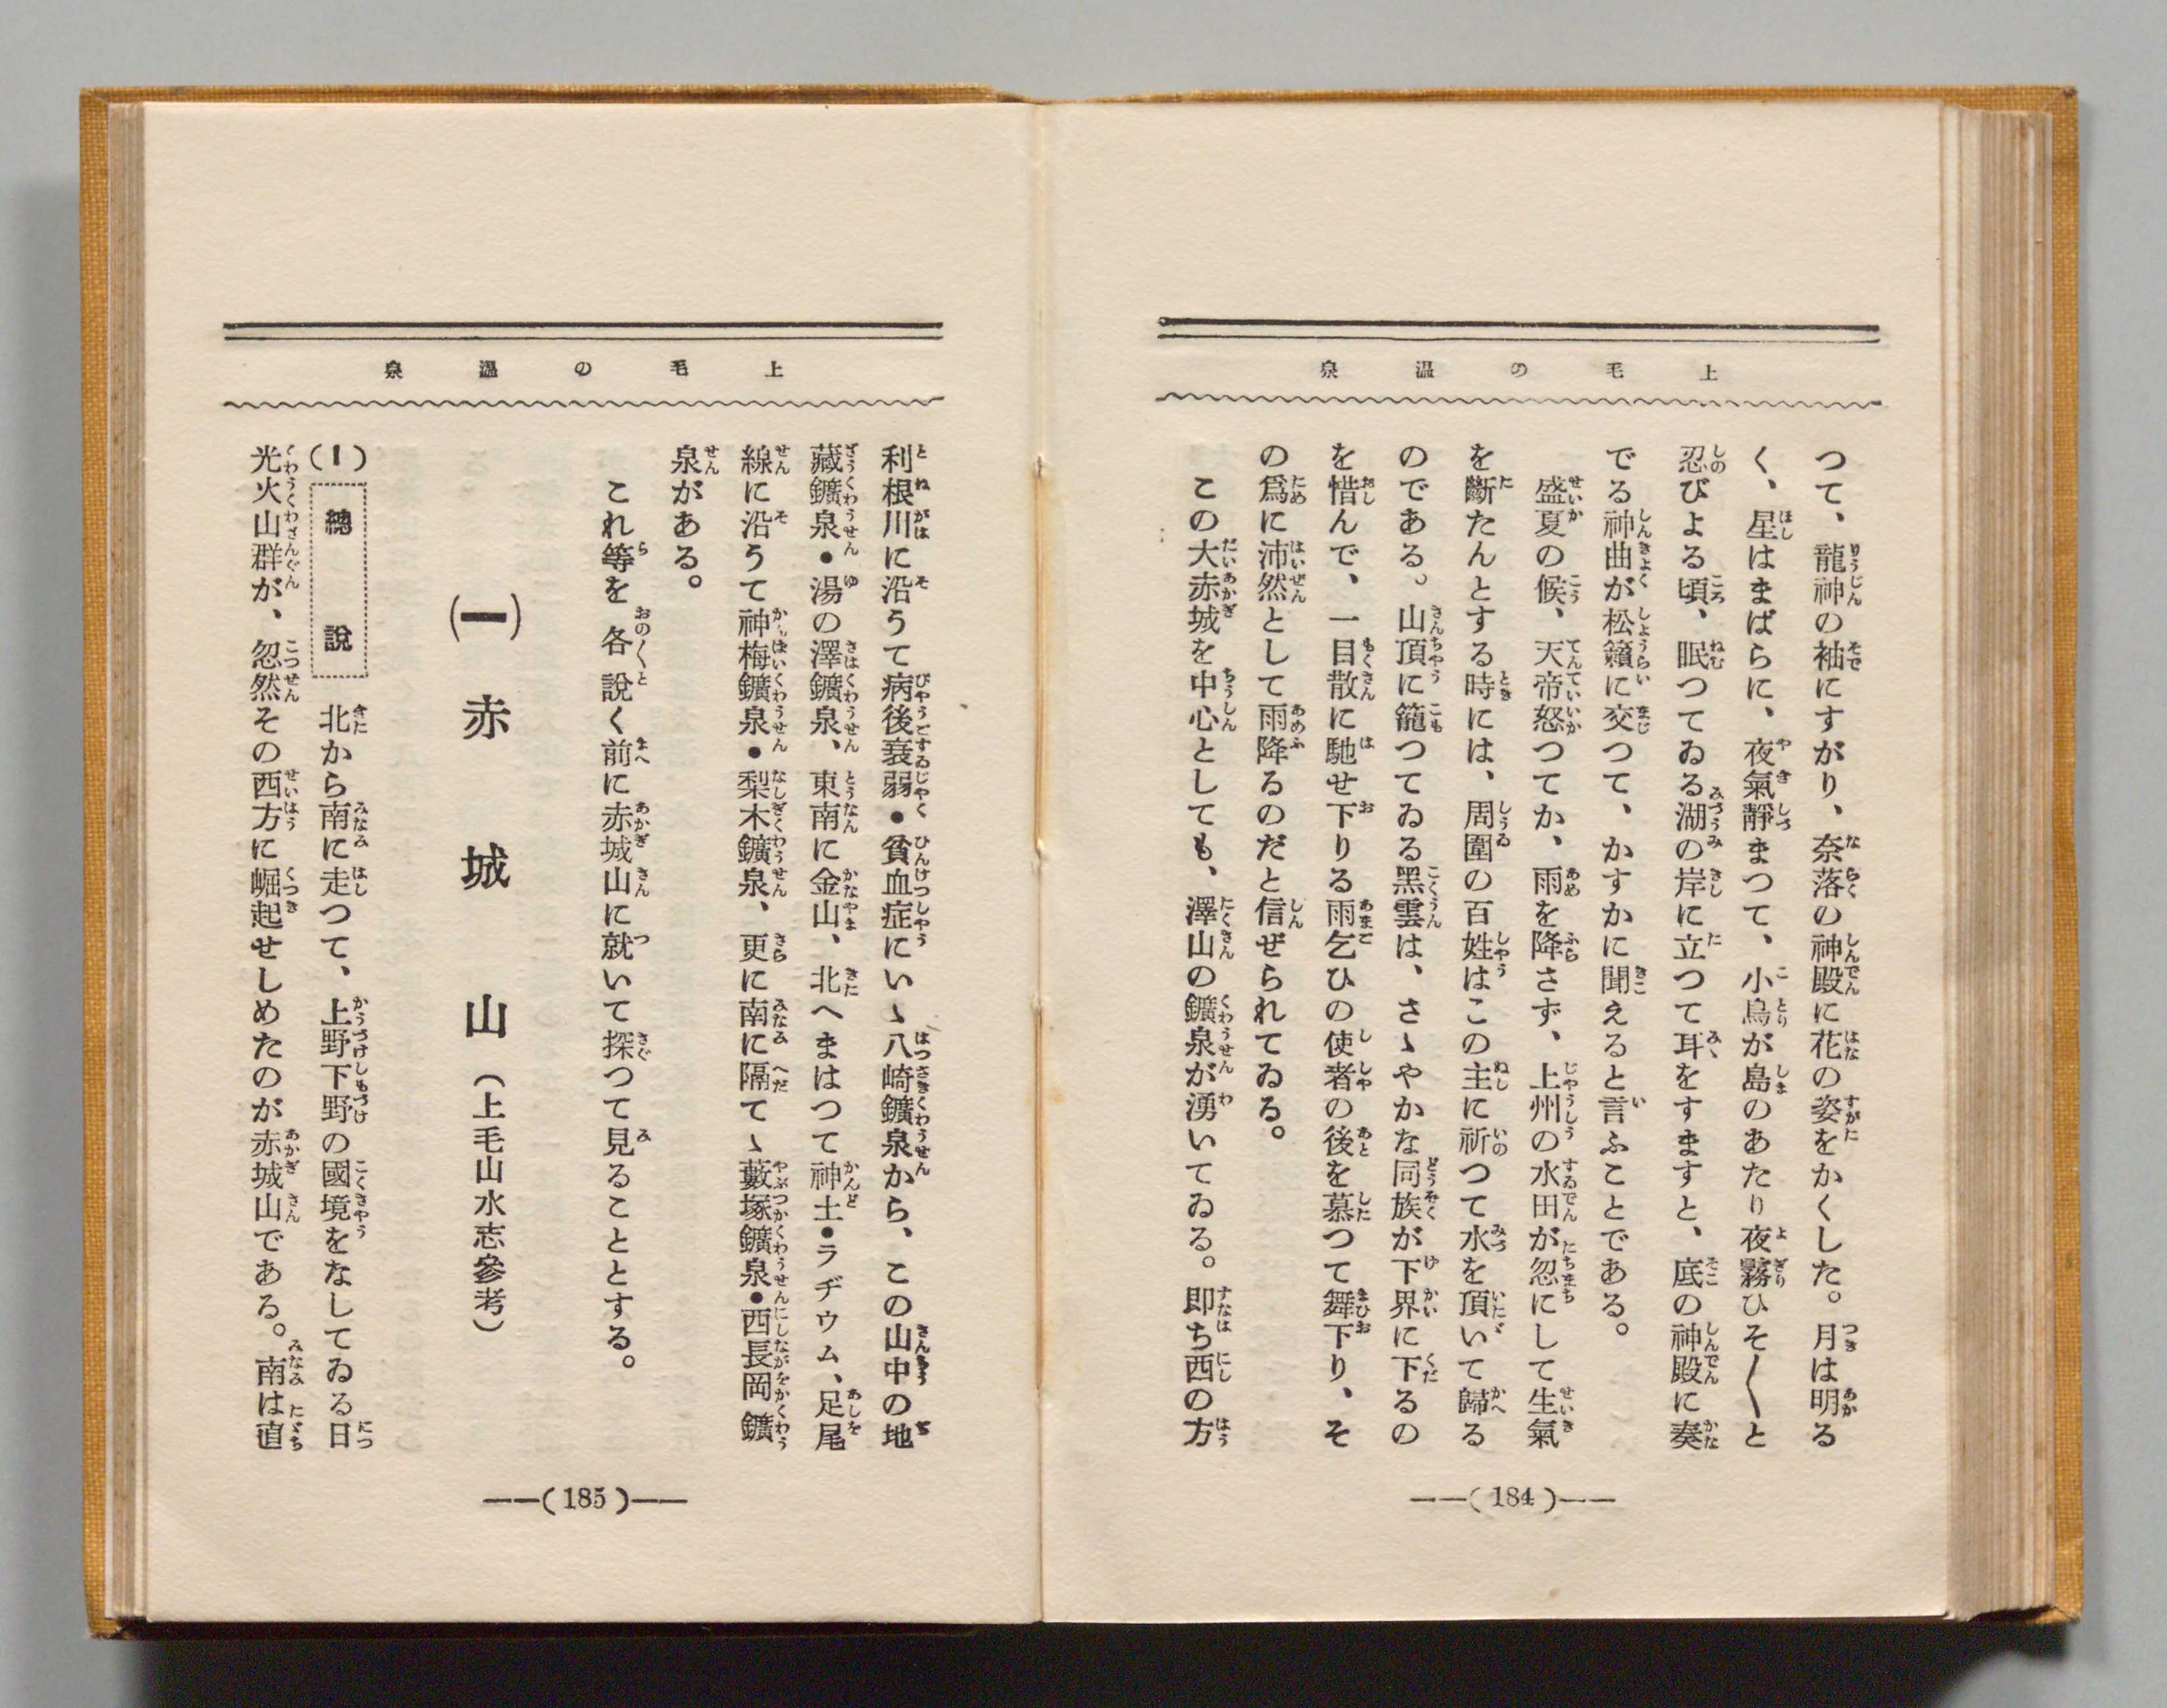 上毛の温泉
つて、龍神の袖にすがり、奈落の神殿に花の姿をかくした。月は明る
く、星はまばらに、夜氣靜まつて、小鳥が島のあたり夜霧ひそ〱と
忍びよる頃、眠つてゐる湖の岸に立つて耳をすますと、底の神殿に奏
でる神曲が松籟に交つて、かすかに聞えると言ふことである。
盛夏の候、天帝怒つてか、雨を降さず、上州の水田が忽にして生氣
を斷たんとする時には、周圍の百姓はこの主に祈つて水を頂いて歸る
のである。山頂に籠つてゐる黑雲は、さゝやかな同族が下界に下るの
を惜んで、一目散に馳せ下りる雨乞ひの使者の後を慕つて舞下り、そ
の爲に沛然として雨降るのだと信ぜられてゐる。
この大赤城を中心としても、澤山の鑛泉が湧いてゐる。即ち西の方
——(184)——
上毛の溫泉
利根川に沿うて病後衰弱・貧血症にいゝ八崎鑛泉から、この山中の地
藏鑛泉・湯の澤鑛泉、東南に金山、北へまはつて神土・ラヂウム、足尾
線に沿うて神梅鑛泉・梨木鑛泉、更に南に隔てゝ藪塚鑛泉・西長岡鑛
泉がある。
これ等を各説く前に赤城山に就いて探つて見ることとする。
(一)赤城山(上毛山水志參考)
(1)總說 北から南に走つて、上野下野の國境をなしてゐる日
光火山群が、忽然その西方に崛起せしめたのが赤城山である。南は直
——(185)——